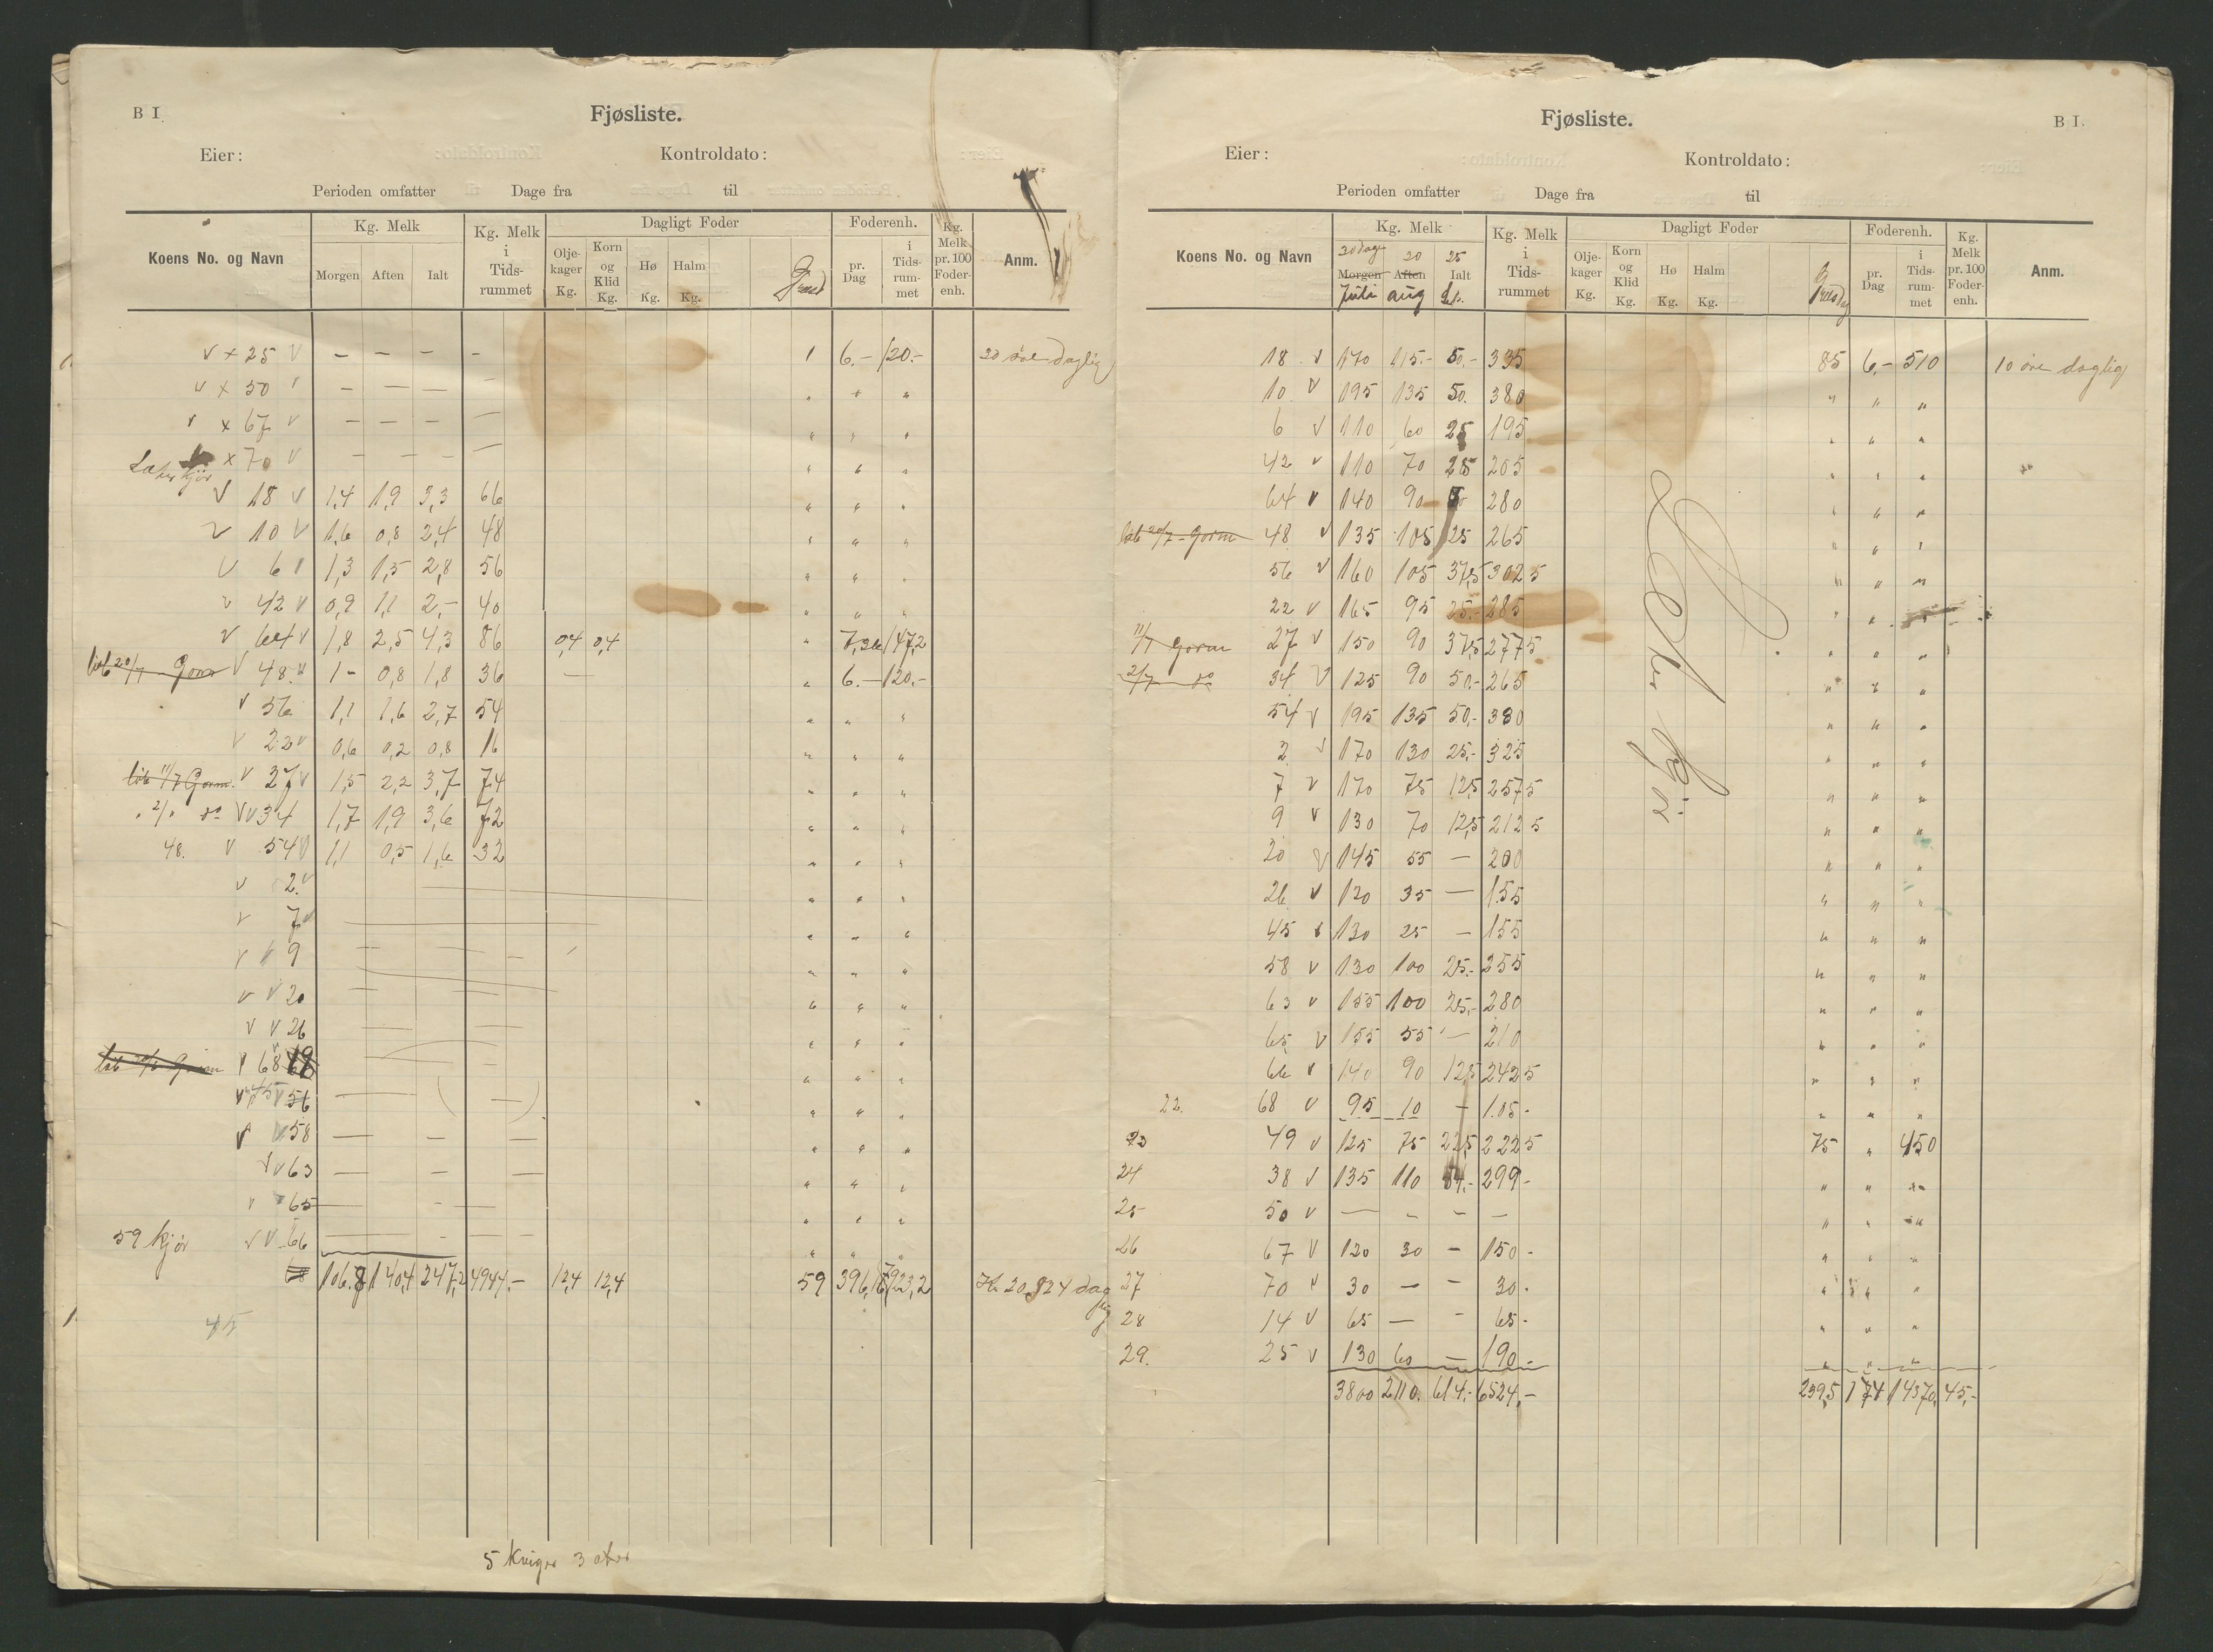 B I.
Fjøsliste.
Eier:
Kontroldato:
Perioden omfatter Dage fra til
Koens No. og Navn
Kg. Melk
Morgen Aften Ialt
Kg. Melk i Tids-rummet
Dagligt Foder
Olje-kager Kg.
Korn og Klid Kg.
Hø Kg.
Halm Kg.
Foderenh.
pr. Dag
i Tids-rum-met
Kg. Melk pr. 100 Foder-enh.
Anm.
v x 25 v — — — — 1 6.- 120.- 20 øre daglig
v x 50 v — — — — " " "
v x 67 v — — — — " " "
v x 70 v — — — — " " "
v 18 v 1,4 1,9 3,3 66 " " "
v 10 v 1,6 0,8 2,4 48 " " "
v 6 v 1,3 1,5 2,8 56 " " "
v 42 v 0,9 1,1 2,- 40 " " "
v 64 v 1,8 2,5 4,3 86 0,4 0,4 " 7,36 147,2
løb 20/7 Gorm v 48. v 1- 0,8 1,8 36 — " 6.- 120.-
v 56 1,1 1,6 2,7 54 " " "
v 22 v 0,6 0,2 0,8 16 " " "
løb 11/7 Gorm. v 27 v 1,5 2,2 3,7 74 " " "
do v v 34 1,7 1,9 3,6 72 " " "
48. v 54 v 1,1 0,5 1,6 32 " " "
v 2. v " " "
v 7 v " " "
v v 9 " " "
v v 20 " " "
v v 26 " " "
v 68 " " "
v v 56 " " "
v v 58 — — — " " "
v v 63 — — — " " "
v 65 — " " "
59 kjør v v 66 — — — " " "
106.8 140,4 247,2 4944.- 12,4 12,4 59 396,16 7923,2
45
5 kviger 3 okser
Fjøsliste.
B I.
Eier:
Kontroldato:
Perioden omfatter Dage fra til
Koens No. og Navn
Kg. Melk
30 dage 20 25
Morgen Aften Ialt
Juli aug
Kg. Melk i Tids-rummet
Dagligt Foder
Olje-kager Kg.
Korn og Klid Kg.
Hø Kg.
Halm Kg.
Foderenh.
pr. Dag
i Tids-rum-met
Kg. Melk pr. 100 Foder-enh.
Anm.
18 v 170 115.- 50.- 335 85 6,- 510 10 øre daglig
10 v 195 135 50. 380 " " "
6 v 110 60 25 195 " " "
42 v 110 70 25 205 " " "
64 v 140 90 280 " " "
løb 20/7 - Gorm 48 v 135 105 25 265 " " "
56 v 160 105 37,5 302 5 " " "
22 v 165 95 25.- 285 " " "
11/7 Gorm 27 v 150 90 37,5 277 5 " " "
2/7 do 34 v 125 90 50.- 265 " " "
54 v 195 135 50,- 380 " " "
2 v 170 130 25,- 325 " " "
7 v 170 75 12,5 257 5 " " "
9 v 130 70 12,5 212 5 " " "
20 v 145 55 — 200 " " "
26 v 120 35 — 155 " " "
45 v 130 25 — 155 " " "
58 v 130 100 25.- 255 " " "
63 v 155 100 25,- 280 " " "
65 v 155 55 — 210 " " "
66 v 140 90 12,5 242 5 " " "
22. 68 v 95 10 — 105- " " "
23 49 v 125 75 22,5 222 5 75 " 450
24 38 v 135 110 54.- 299- " " "
25 50 v — — — — " " "
26 67 v 120 30 — 150- " " "
27 70 v 30 — — 30. " " "
28 14 v 65 — — 65- " " "
29. 25 v 130 60 — 190- " " "
3800 2110. 614.- 6524,- 2395 174 14370. 45,-